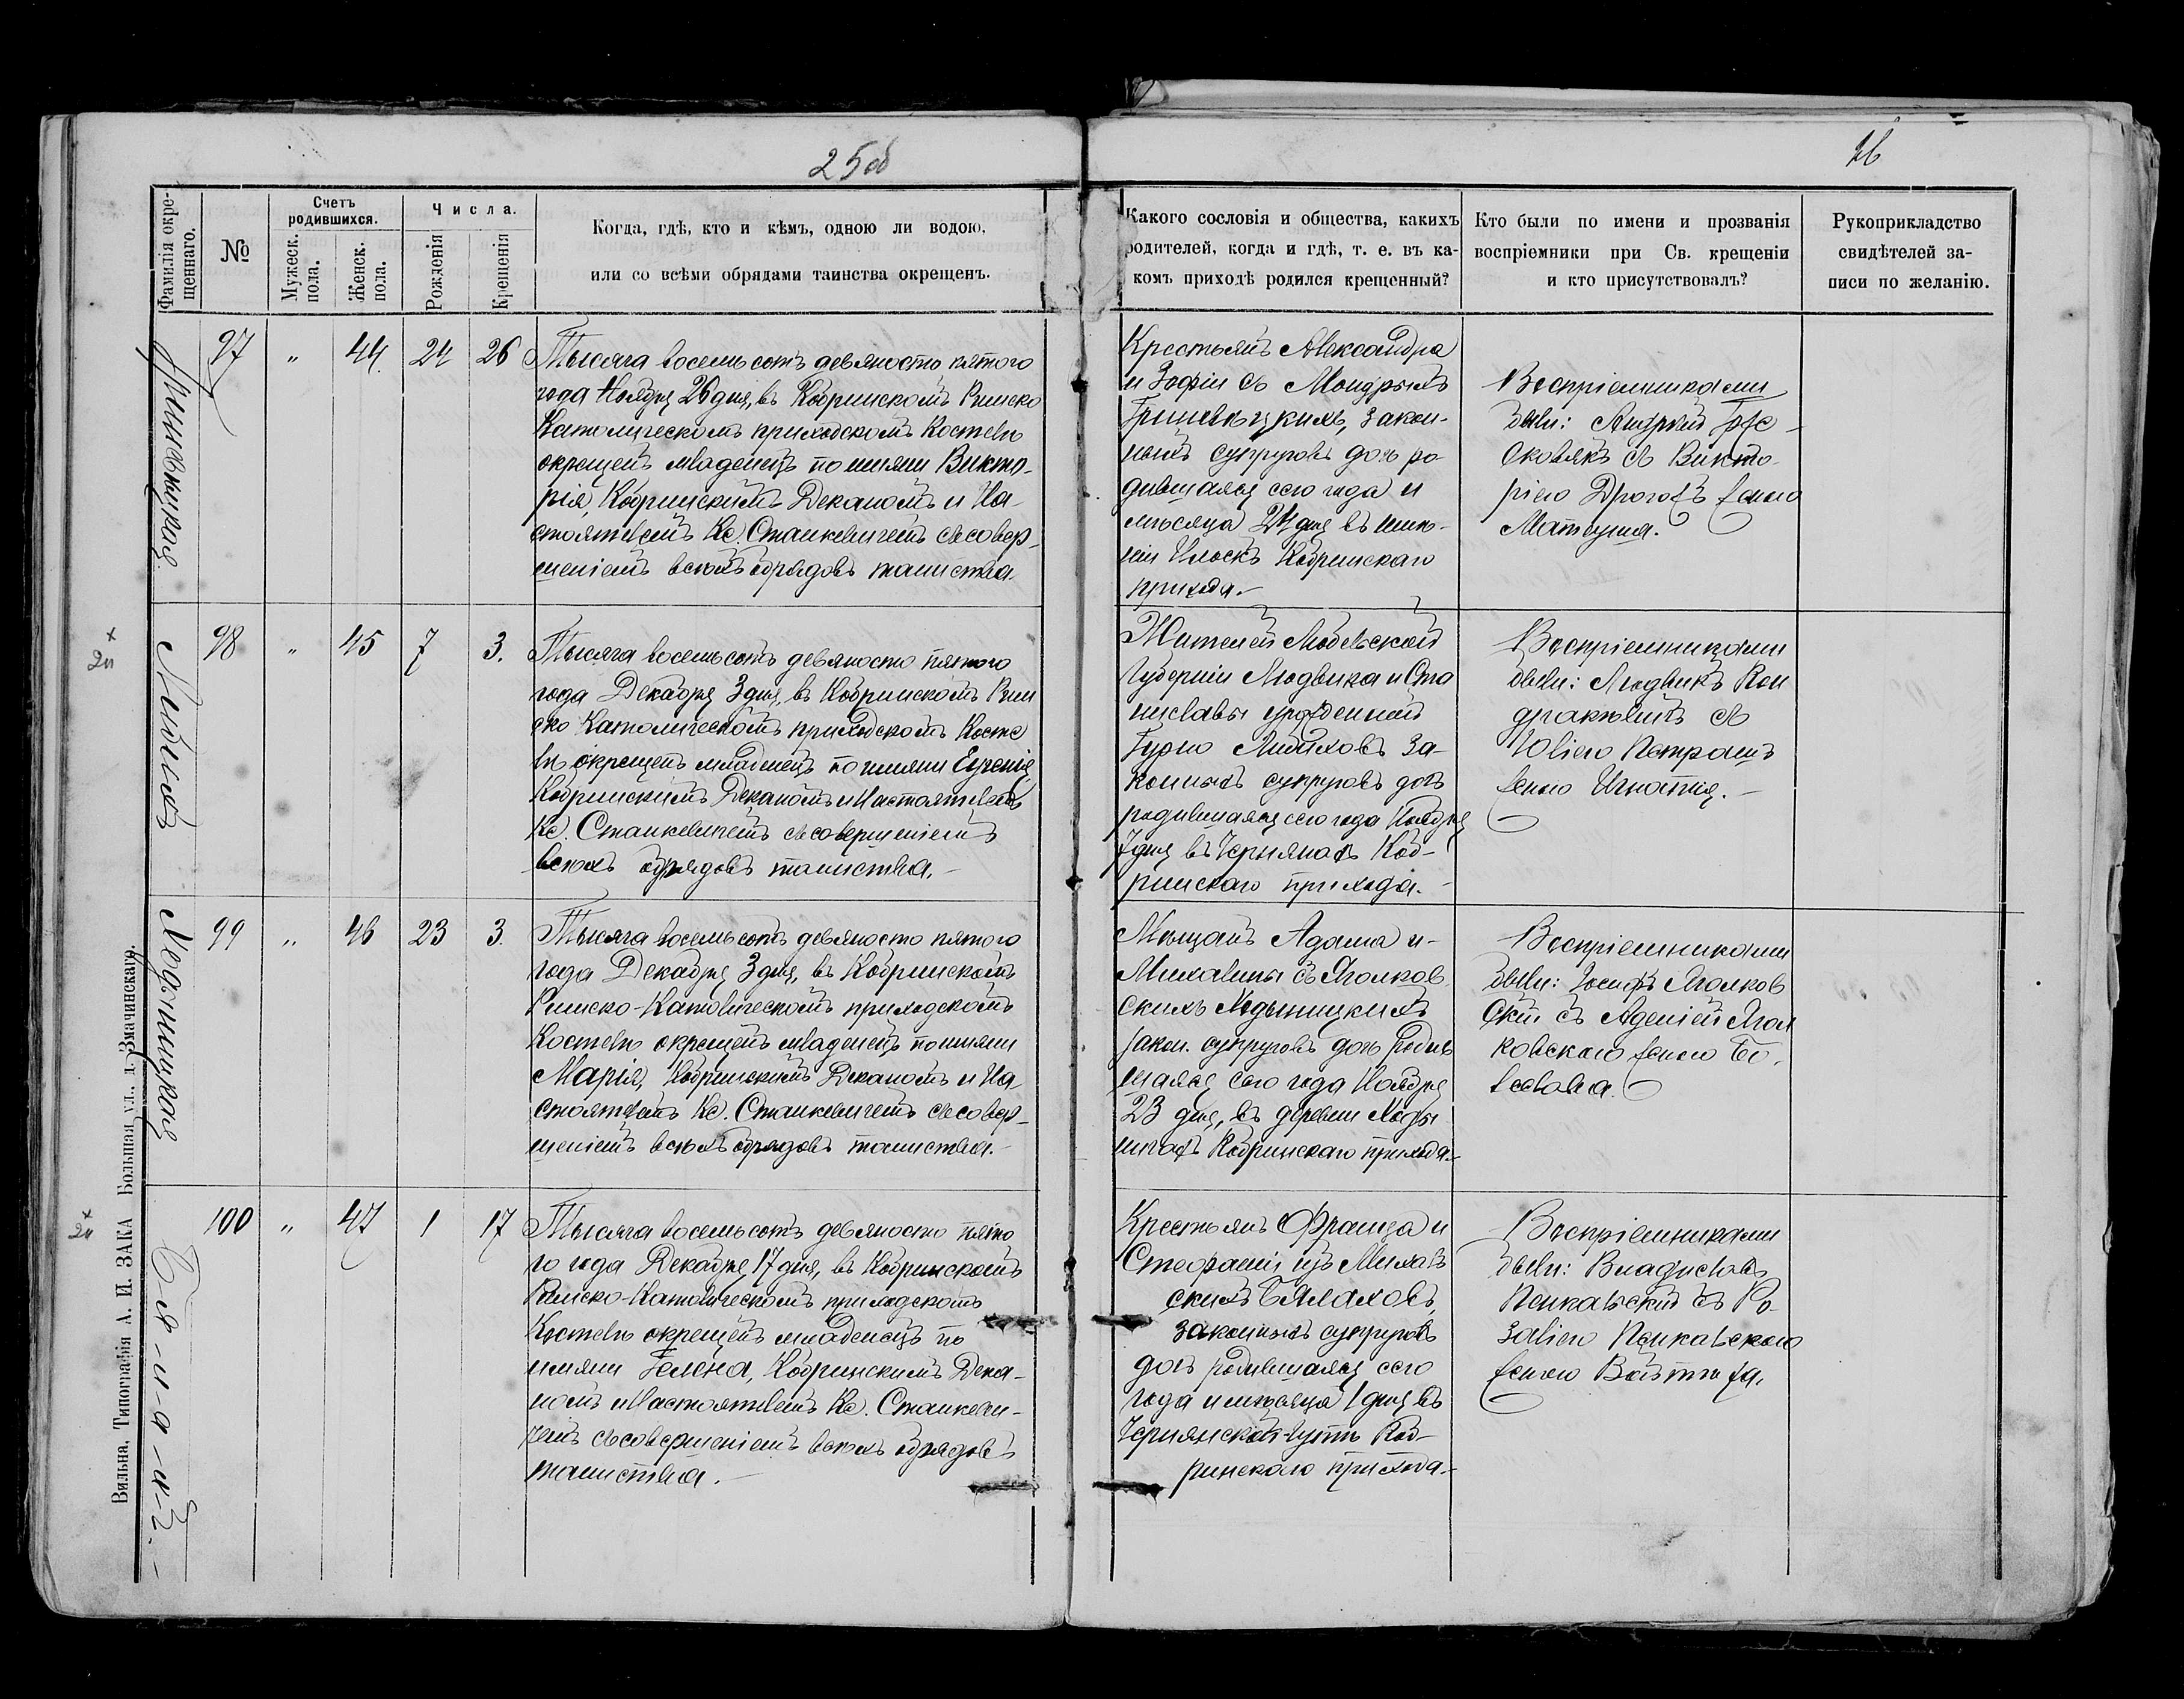 25об
26
Фамилія окре-
щеннаго.
№
Счетъ
родившихся.
Мужеск.
пола.
Женск.
пола.
Числа.
Рожденія
Крещенія
Когда, гдѣ, кто и кѣмъ, одною ли водою,
или со всѣми обрядами таинства окрещенъ.
Какого сословія и общества, какихъ
родителей, когда и гдѣ, т. е. въ ка-
комъ приходѣ родился крещенный?
Кто были по имени и прозванія
воспріемники при Св. крещеніи
и кто присутствовалъ?
Рукоприкладство
свидѣтелей за-
писи по желанію.
Гриневицкая
97 " 44. 24 26
Тысяча восемьсотъ девяносто пятого
года Ноября 26 дня, въ Кобринскомъ Римско
Католическомъ приходскомъ Костелѣ
окрещенъ младенецъ по имяни Викто-
рія, Кобринскимъ Деканомъ и На-
стоятелемъ Кс. Станкевичемъ съ совер-
шеніемъ всѣхъ обрядовъ таинства.
Крестьянъ Александра
и Зофіи съ Мондрыхъ
Гриневицкихъ, закон-
ныхъ супруговъ дочь ро-
дившаяся сего года и
мѣсяца 24 дня въ имѣ-
ніи Илоскъ Кобринскаго
прихода.-
Воспріемниками
были: Андрей
съ Викто-
ріею женою
Матвуша.
× 2п
98 " 45 7 3.
Тысяча восемьсотъ девяносто пятого
года Декабря 3 дня, въ Кобринскомъ Рим
ско Католическомъ приходскомъ Косте
лѣ окрещенъ младенецъ по имяни Евгенія,
Кобринскимъ Деканомъ и Настоятелемъ
Кс. Станкевичемъ съ совершеніемъ
всѣхъ обрядовъ таинства.-
Жителей
Губерніи Людвика и Ста
ниславы урожденной
Гурко за-
конныхъ супруговъ дочь
родившаяся сего года Ноября
7 дня въ Чернянахъ Коб-
ринскаго прихода.-
Воспріемниками
были: Людвикъ Кон
дракевичъ съ
Юліею Петрашъ
женою Игнатія.-
Медыницкая
99 " 46 23 3.
Тысяча восемьсотъ девяносто пятого
года Декабря 3 дня, въ Кобринскомъ
Римско-Католическомъ приходскомъ
Костелѣ окрещенъ младенецъ по имяни
Марія, Кобринскимъ Деканомъ и На
стоятелемъ Кс. Станкевичемъ съ совер-
шеніемъ всѣхъ обрядовъ таинства.-
Мѣщанъ Адама и-
Михалины съ Яголков
скихъ Медыницкихъ
закон. супруговъ дочь родив
шаяся сего года Ноября
23 дня, въ деревни
Кобринскаго прихода.-
Воспріемниками
были: Іосифъ Яголков
скій съ Аделіей Ягол
ковскою женою Бо-
леслава.
× 2п
100 " 47 1 17
Тысяча восемьсотъ девяносто пято
го года Декабря 17 дня, въ Кобринскомъ
Римско-Католическомъ приходскомъ
Костелѣ окрещенъ младенецъ по
имяни Гелена, Кобринскимъ Дека-
номъ и Настоятелемъ Кс. Станкеви-
чемъ съ совершеніемъ всѣхъ обрядовъ
таинства.-
Крестьянъ Франца и
Стефаніи изъ Михаль
скихъ
законныхъ супруговъ
дочь родившаяся сего
года и мѣсяца 1 дня въ
Чернянской-гутѣ Коб-
ринскаго прихода.-
Воспріемниками
были: Владиславъ
Пенкальскій съ Ро-
заліею Пенкальскою
женою Войтѣха.
Вильна, Типографія А. И. ЗАКА Большая ул., д. Змачинскаго.